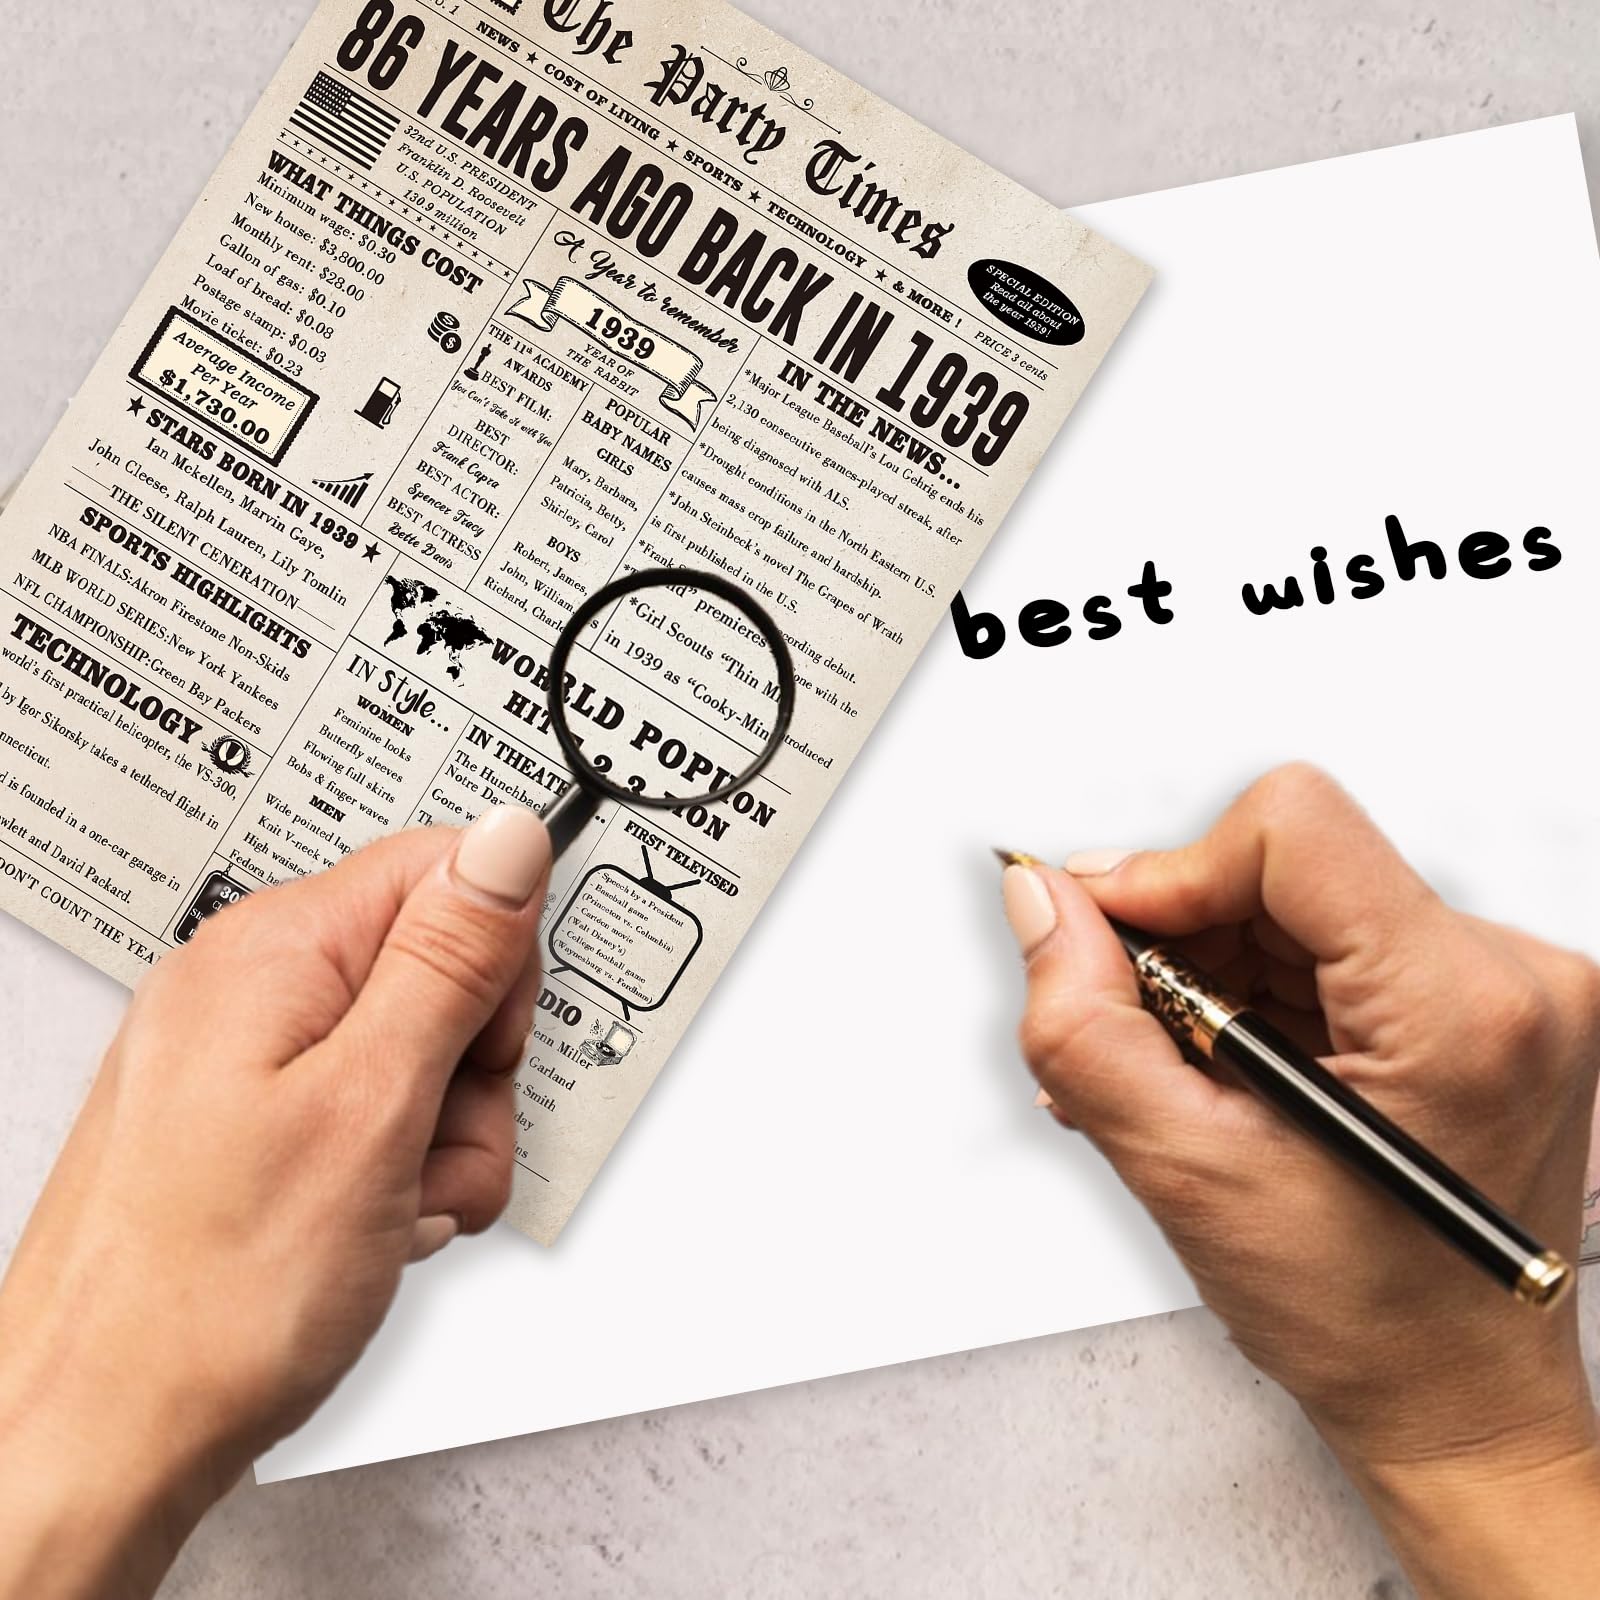 The Party Times
NEWS ★ COST OF LIVING ★ SPORTS ★ TECHNOLOGY ★ & MORE !
PRICE 3 cents
86 YEARS AGO BACK IN 1939
SPECIAL EDITION
Read all about
the year 1939!
32nd U.S. PRESIDENT
Franklin D. Roosevelt
U.S. POPULATION
130.9 million
WHAT THINGS COST
Minimum wage: $0.30
New house: $3,800.00
Monthly rent: $28.00
Gallon of gas: $0.10
Loaf of bread: $0.08
Postage stamp: $0.03
Movie ticket: $0.23
Average Income
Per Year
$1,730.00
★ STARS BORN IN 1939 ★
Ian Mckellen, Marvin Gaye,
John Cleese, Ralph Lauren, Lily Tomlin
THE SILENT GENERATION
SPORTS HIGHLIGHTS
NBA FINALS:Akron Firestone Non-Skids
MLB WORLD SERIES:New York Yankees
NFL CHAMPIONSHIP:Green Bay Packers
TECHNOLOGY
world's first practical helicopter, the VS-300,
by Igor Sikorsky takes a tethered flight in
is founded in a one-car garage in
and David Packard.
DON'T COUNT THE
A Year to remember
1939
YEAR OF
THE RABBIT
THE 11th ACADEMY
AWARDS
BEST FILM:
You Can't Take It with You
BEST
DIRECTOR:
Frank Capra
BEST ACTOR:
Spencer Tracy
BEST ACTRESS
Bette Davis
POPULAR
BABY NAMES
GIRLS
Mary, Barbara,
Patricia, Betty,
Shirley, Carol
BOYS
Robert, James,
John, William,
Richard,
IN THE NEWS...
*Major League Baseball's Lou Gehrig ends his
2,130 consecutive games-played streak, after
being diagnosed with ALS.
*Drought conditions in the North Eastern U.S.
causes mass crop failure and hardship.
*John Steinbeck's novel The Grapes of Wrath
is first published in the U.S.
*Frank
recording debut.
premieres
one with the
*Girl Scouts "Thin
introduced
in 1939 as "Cooky-Min
WORLD
HIT 2.3
IN Style...
WOMEN
Feminine looks
Butterfly sleeves
Flowing full skirts
Bobs & finger waves
MEN
Wide pointed
Knit V-neck
High waisted
Fedora
IN
The Hunchback
Notre
Gone
FIRST TELEVISED
Speech by a President
- Baseball game
(Princeton vs. Columbia)
- Cartoon movie
(Walt Disney's)
- College football game
(Waynesburg vs. Fordham)
Miller
Garland
Smith
best wishes